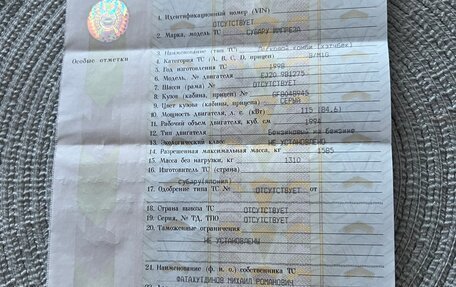 1. Идентификационный номер (VIN)
ОТСУТСТВУЕТ
2. Марка, модель ТС СУБАРУ ИМПРЕЗА
Особые отметки
3. Наименование (тип ТС) Легковой комби (хэтчбек)
4. Категория ТС (А, В, С, D, прицеп) B/M1G
5. Год изготовления ТС 1998
6. Модель, № двигателя EJ20 981275
7. Шасси (рама) № ОТСУТСТВУЕТ
8. Кузов (кабина, прицеп) № GF8048945
9. Цвет кузова (кабины, прицепа) СЕРЫЙ
10. Мощность двигателя, л. с. (кВт) 115 (84,6)
11. Рабочий объем двигателя, куб. см 1994
12. Тип двигателя Бензиновый на бензине
13. Экологический класс НЕ УСТАНОВЛЕНО
14. Разрешенная максимальная масса, кг 1585
15. Масса без нагрузки, кг 1310
16. Изготовитель ТС (страна)
субару(япония)
17. Одобрение типа ТС № ОТСУТСТВУЕТ от
18. Страна вывоза ТС ОТСУТСТВУЕТ
19. Серия, № ТД, ТПО ОТСУТСТВУЕТ
20. Таможенные ограничения
НЕ УСТАНОВЛЕНЫ
21. Наименование (ф. и. о.) собственника ТС
ФАТАХУТДИНОВ МИХАИЛ РОМАНОВИЧ